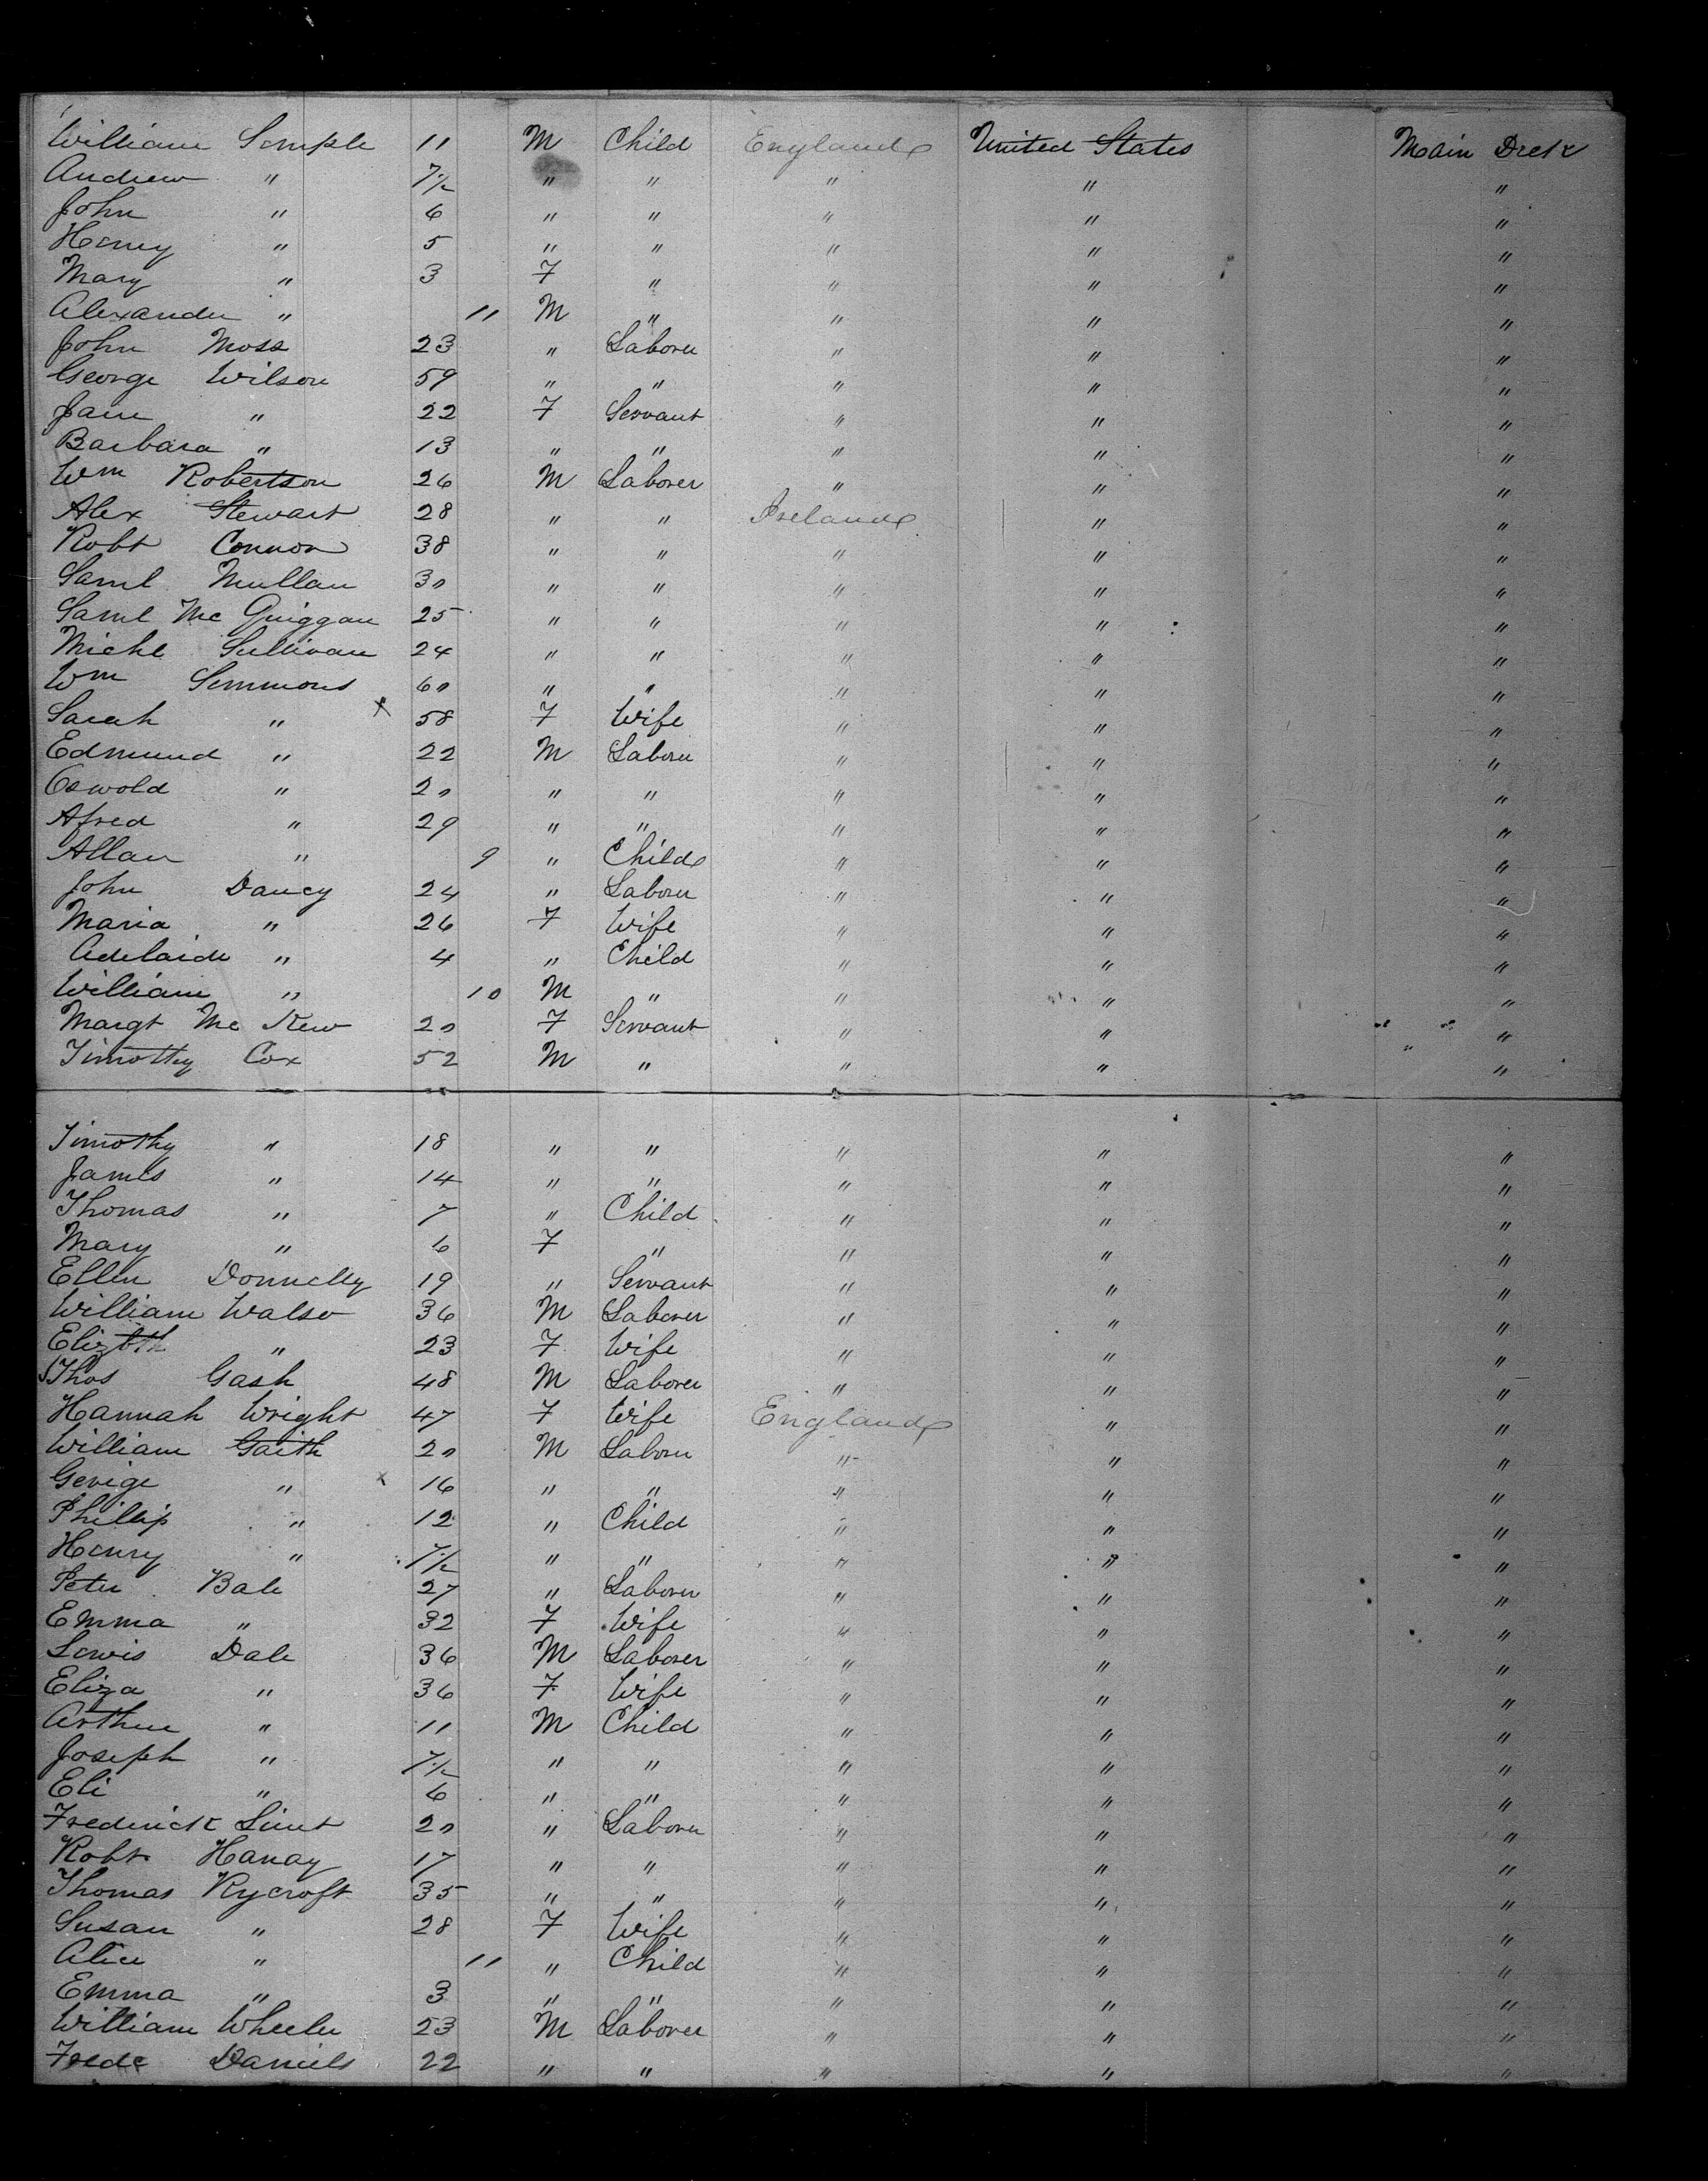 William Semple 11 M Child England United States Main Deck
Andrew " 7½ " " " " "
John " 6 " " " " "
Henry " 5 " " " " "
Mary " 3 F " " " "
Alexander " 11 M " " " "
John Moss 23 " Laborer " " "
George Wilson 59 " " " " "
Jane " 22 F Servant " " "
Barbara " 13 " " " " "
Wm Robertson 26 M Laborer " " "
Alex Stewart 28 " " Ireland " "
Robt Connor 38 " " " " "
Saml Mullan 30 " " " " "
Saml Mc Guiggan 25 " " " " "
Michl Sullivan 24 " " " " "
Wm Semmons 60 " " " " "
Sarah " x 58 F Wife " " "
Edmund " 22 M Laborer " " "
Oswold " 20 " " " " "
Afred " 29 " " " " "
Allan " 9 " Child " " "
John Dancy 24 " Laborer " " "
Maria " 26 F Wife " " "
Adelaide " 4 " Child " " "
William " 10 M " " " "
Margt Mc Kew 20 F Servant " " "
Timothy Cox 52 M " " " "
Timothy " 18 " " " " "
James " 14 " " " " "
Thomas " 7 " Child " " "
Mary " 6 F " " " "
Ellen Donnelly 19 " Servant " " "
William 36 M Laborer " " "
Elizbth " 23 F Wife " " "
Thos Gash 48 M Laborer " " "
Hannah Wright 47 F Wife England " "
William Gaith 20 M Laborer " " "
George " x 16 " " " " "
Phillip " 12 " Child " " "
Henry " 7½ " " " " "
Peter Bale 27 " Laborer " " "
Emma " 32 F Wife " " "
Lewis Dale 36 M Laborer " " "
Eliza " 36 F Wife " " "
Arthur " 11 M Child " " "
Joseph " 7½ " " " " "
Eli " 6 " " " " "
Frederick 20 " Laborer " " "
Robt Hanay 17 " " " " "
Thomas Rycroft 35 " " " " "
Susan " 28 F Wife " " "
Alice " 11 " Child " " "
Emma " 3 " " " " "
William Wheeler 23 M Laborer " " "
Fredc Daniels 22 " " " " "